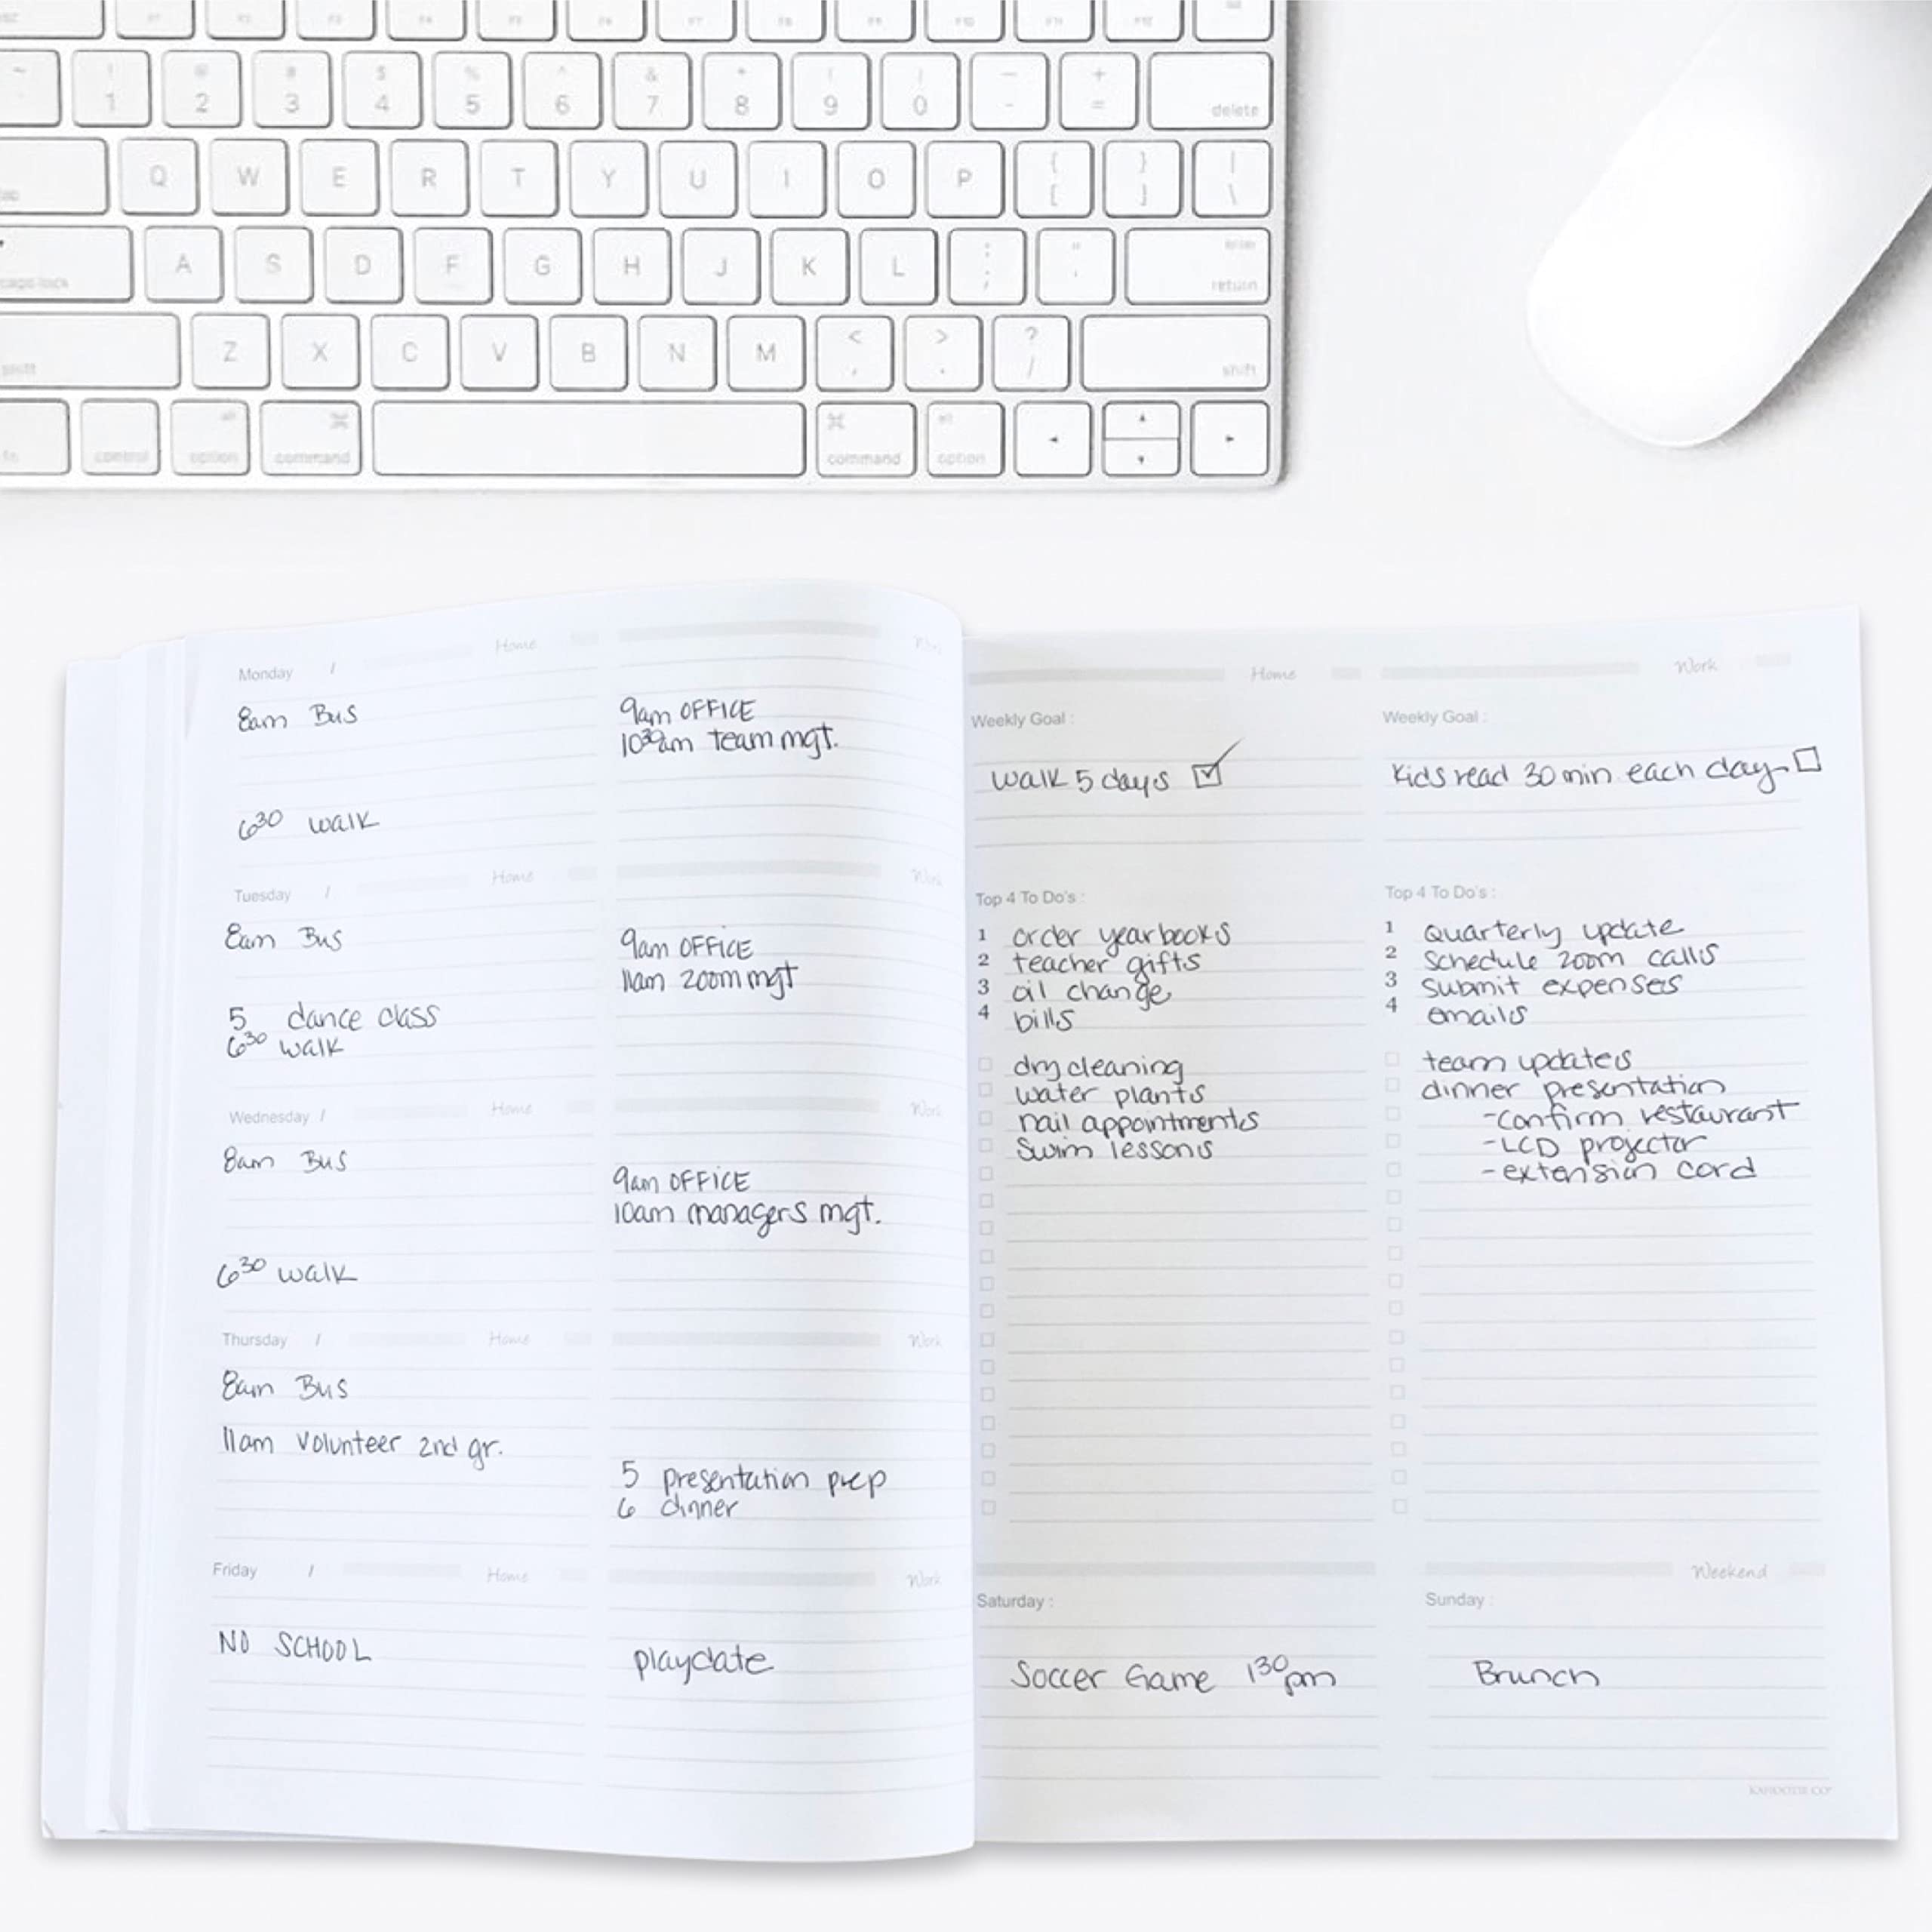 ~ ! @ # $ % ^ & * ( ) — +
1 2 3 4 5 6 7 8 9 0 - = delete
Q W E R T Y U I O P { [ } ] | \
caps lock A S D F G H J K L : ; " ' enter return
shift Z X C V B N M < , > . ? / shift
fn control alt option ⌘ command ⌘ command alt option
Monday / Home Work
8am Bus
9am OFFICE
10³⁰am team mgt.
6³⁰ walk
Tuesday / Home Work
8am Bus
9am OFFICE
11am zoom mgt
5 dance class
6³⁰ walk
Wednesday / Home Work
8am Bus
9am OFFICE
10am managers mgt.
6³⁰ walk
Thursday / Home Work
8am Bus
11am Volunteer 2nd gr.
5 presentation prep
6 dinner
Friday / Home Work
NO SCHOOL
playdate
Home
Weekly Goal :
walk 5 days ☑
Top 4 To Do's :
1 order yearbooks
2 teacher gifts
3 oil change
4 bills
dry cleaning
water plants
nail appointments
Swim lessons
Work
Weekly Goal :
Kids read 30 min each day ☐
Top 4 To Do's :
1 quarterly update
2 schedule zoom calls
3 submit expenses
4 emails
team updates
dinner presentation
-confirm restaurant
-LCD projector
-extension cord
Weekend
Saturday :
Soccer Game 1³⁰pm
Sunday :
Brunch